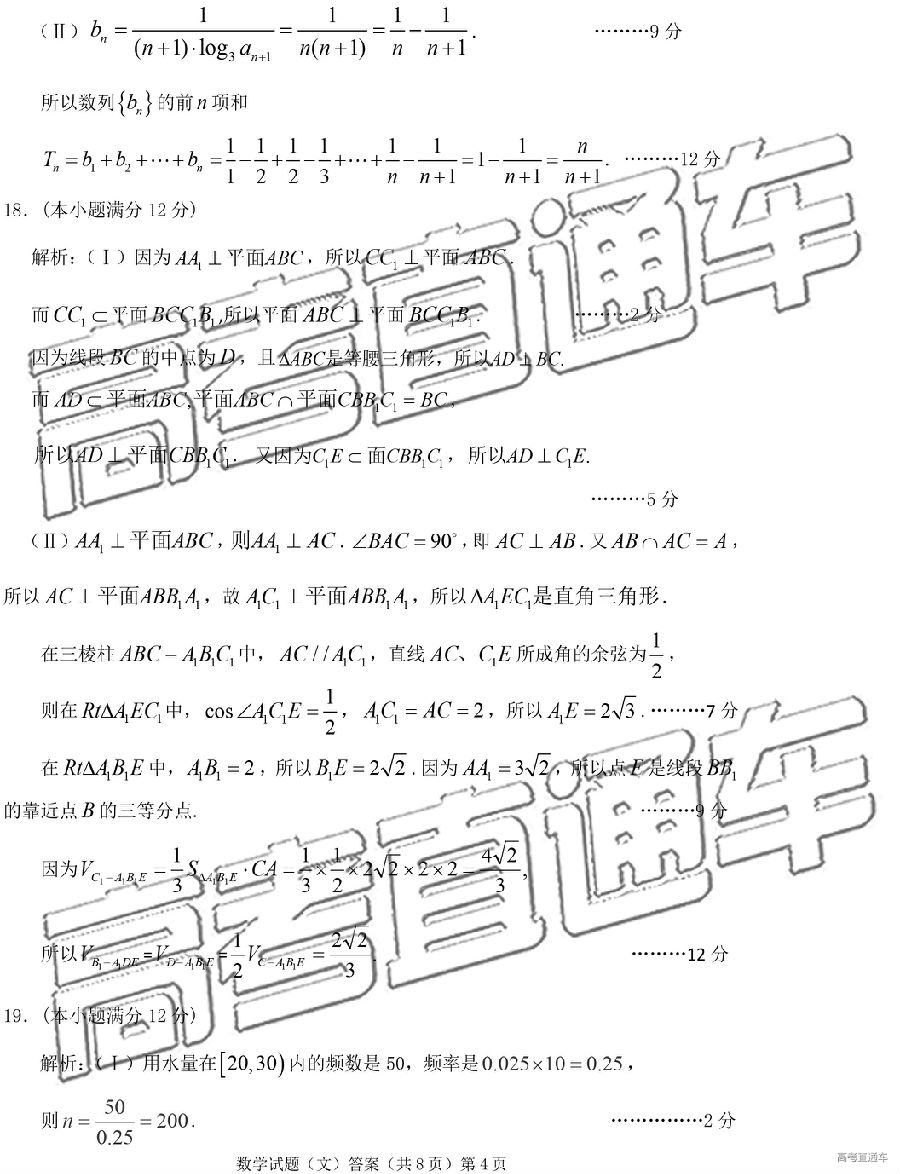 (Ⅱ) bₙ = 1/((n+1)·log₃ aₙ₊₁) = 1/(n(n+1)) = 1/n − 1/(n+1). ………9 分
所以数列{bₙ}的前 n 项和
Tₙ = b₁ + b₂ + ⋯ + bₙ = 1/1 − 1/2 + 1/2 − 1/3 + ⋯ + 1/n − 1/(n+1) = 1 − 1/(n+1) = n/(n+1). ………12 分
18. (本小题满分 12 分)
解析:(Ⅰ)因为 AA₁ ⊥ 平面ABC,所以 CC₁ ⊥ 平面 ABC.
而 CC₁ ⊂ 平面 BCC₁B₁,所以平面 ABC ⊥ 平面 BCC₁B₁. ………2 分
因为线段 BC 的中点为 D,且 ΔABC是等腰三角形,所以AD ⊥ BC.
而 AD ⊂ 平面ABC,平面ABC ∩ 平面CBB₁C₁ = BC,
所以AD ⊥ 平面CBB₁C₁. 又因为C₁E ⊂ 面CBB₁C₁,所以AD ⊥ C₁E.
………5 分
(Ⅱ) AA₁ ⊥ 平面ABC,则AA₁ ⊥ AC. ∠BAC = 90°,即 AC ⊥ AB.又 AB ∩ AC = A,
所以 AC ⊥ 平面ABB₁A₁,故 A₁C₁ ⊥ 平面ABB₁A₁,所以 ΔA₁EC₁是直角三角形.
在三棱柱 ABC − A₁B₁C₁ 中, AC // A₁C₁,直线 AC、C₁E 所成角的余弦为 1/2,
则在 RtΔA₁EC₁ 中, cos∠A₁C₁E = 1/2, A₁C₁ = AC = 2,所以 A₁E = 2√3. ………7 分
在 RtΔA₁B₁E 中, A₁B₁ = 2,所以 B₁E = 2√2.因为 AA₁ = 3√2,所以点 E 是线段 BB₁
的靠近点 B 的三等分点. ………9 分
因为 V_{C₁−A₁B₁E} = 1/3 S_{ΔA₁B₁E} · CA = 1/3 × 1/2 × 2√2 × 2 × 2 = 4√2/3,
所以 V_{B₁−A₁DE} = V_{D−A₁B₁E} = 1/2 V_{C−A₁B₁E} = 2√2/3. ………12 分
19. (本小题满分 12 分)
解析:(Ⅰ)用水量在[20,30)内的频数是 50,频率是 0.025×10 = 0.25,
则 n = 50/0.25 = 200. ……………2 分
数学试题(文)答案(共 8 页)第 4 页
高考直通车
高考直通车
高考直通车